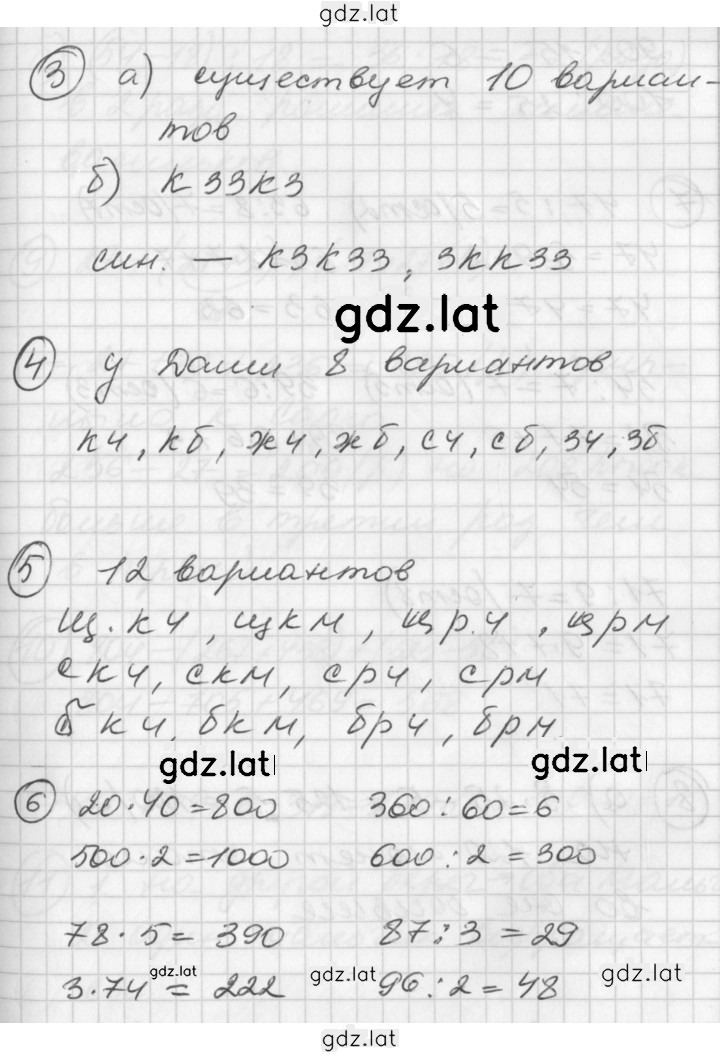 gdz.lat
③ а) существует 10 вариан-
тов
б) КЗЗКЗ
син. — КЗКЗЗ, ЗККЗЗ
gdz.lat
④ у Даши 8 вариантов
кч, кб, жч, жб, сч, сб, зч, зб
⑤ 12 вариантов
щ.кч, щкм, щр.ч, щрм
скч, скм, срч, срм
бкч, бкм, брч, брм
gdz.lat gdz.lat
⑥ 20·40=800 360:60=6
500·2=1000 600:2=300
78·5=390 87:3=29
3·74=222 96:2=48
gdz.lat gdz.lat gdz.lat
gdz.lat